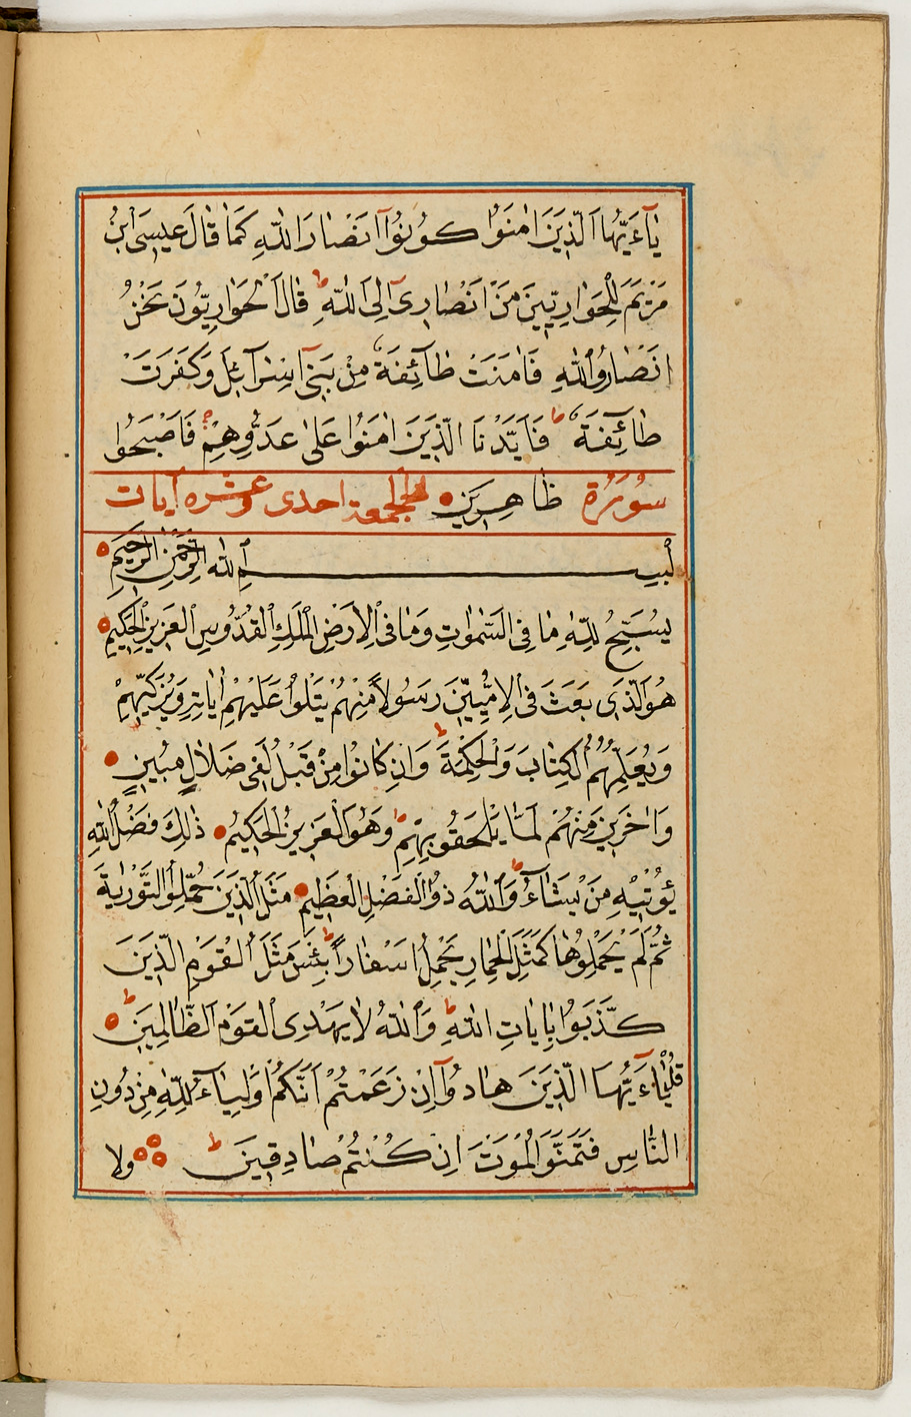 يَاءَيُّهَا الَّذِينَ اٰمَنُوا كُونُوا اَنْصَارَ اللّٰهِ كَمَا قَالَ عِيسَى ابْنُ
مَرْيَمَ لِلْحَوَارِيِّينَ مَنْ اَنْصَارِى اِلَى اللّٰهِ ط قَالَ الْحَوَارِيُّونَ نَحْنُ
اَنْصَارُ اللّٰهِ فَاٰمَنَتْ طَآئِفَةٌ مِنْ بَنِى اِسْرَآئِلَ وَكَفَرَتْ
طَآئِفَةٌ ط فَاَيَّدْنَا الَّذِينَ اٰمَنُوا عَلٰى عَدُوِّهِمْ فَاَصْبَحُوا
سُورَةُ ظَاهِرِينَ الجمعة احدى وعشره آيات
بِسْمِ اللّٰهِ الرَّحْمٰنِ الرَّحِيمِ
يُسَبِّحُ لِلّٰهِ مَا فِى السَّمٰوَاتِ وَمَا فِى الْاَرْضِ الْمَلِكِ الْقُدُّوسِ الْعَزِيزِ الْحَكِيمِ
هُوَ الَّذِى بَعَثَ فِى الْاُمِّيِّينَ رَسُولًا مِنْهُمْ يَتْلُوا عَلَيْهِمْ اٰيَاتِهِ وَيُزَكِّيهِمْ
وَيُعَلِّمُهُمُ الْكِتَابَ وَالْحِكْمَةَ ط وَاِنْ كَانُوا مِنْ قَبْلُ لَفِى ضَلَالٍ مُبِينٍ
وَاٰخَرِينَ مِنْهُمْ لَمَّا يَلْحَقُوا بِهِمْ ط وَهُوَ الْعَزِيزُ الْحَكِيمُ ذٰلِكَ فَضْلُ اللّٰهِ
يُؤْتِيهِ مَنْ يَشَاءُ ط وَاللّٰهُ ذُو الْفَضْلِ الْعَظِيمِ مَثَلُ الَّذِينَ حُمِّلُوا التَّوْرٰيةَ
ثُمَّ لَمْ يَحْمِلُوهَا كَمَثَلِ الْحِمَارِ يَحْمِلُ اَسْفَارًا ط بِئْسَ مَثَلُ الْقَوْمِ الَّذِينَ
كَذَّبُوا بِاٰيَاتِ اللّٰهِ ط وَاللّٰهُ لَا يَهْدِى الْقَوْمَ الظَّالِمِينَ ط
قُلْ يَاءَيُّهَا الَّذِينَ هَادُوا اِنْ زَعَمْتُمْ اَنَّكُمْ اَوْلِيَاءُ لِلّٰهِ مِنْ دُونِ
النَّاسِ فَتَمَنَّوُا الْمَوْتَ اِنْ كُنْتُمْ صَادِقِينَ ط ولا